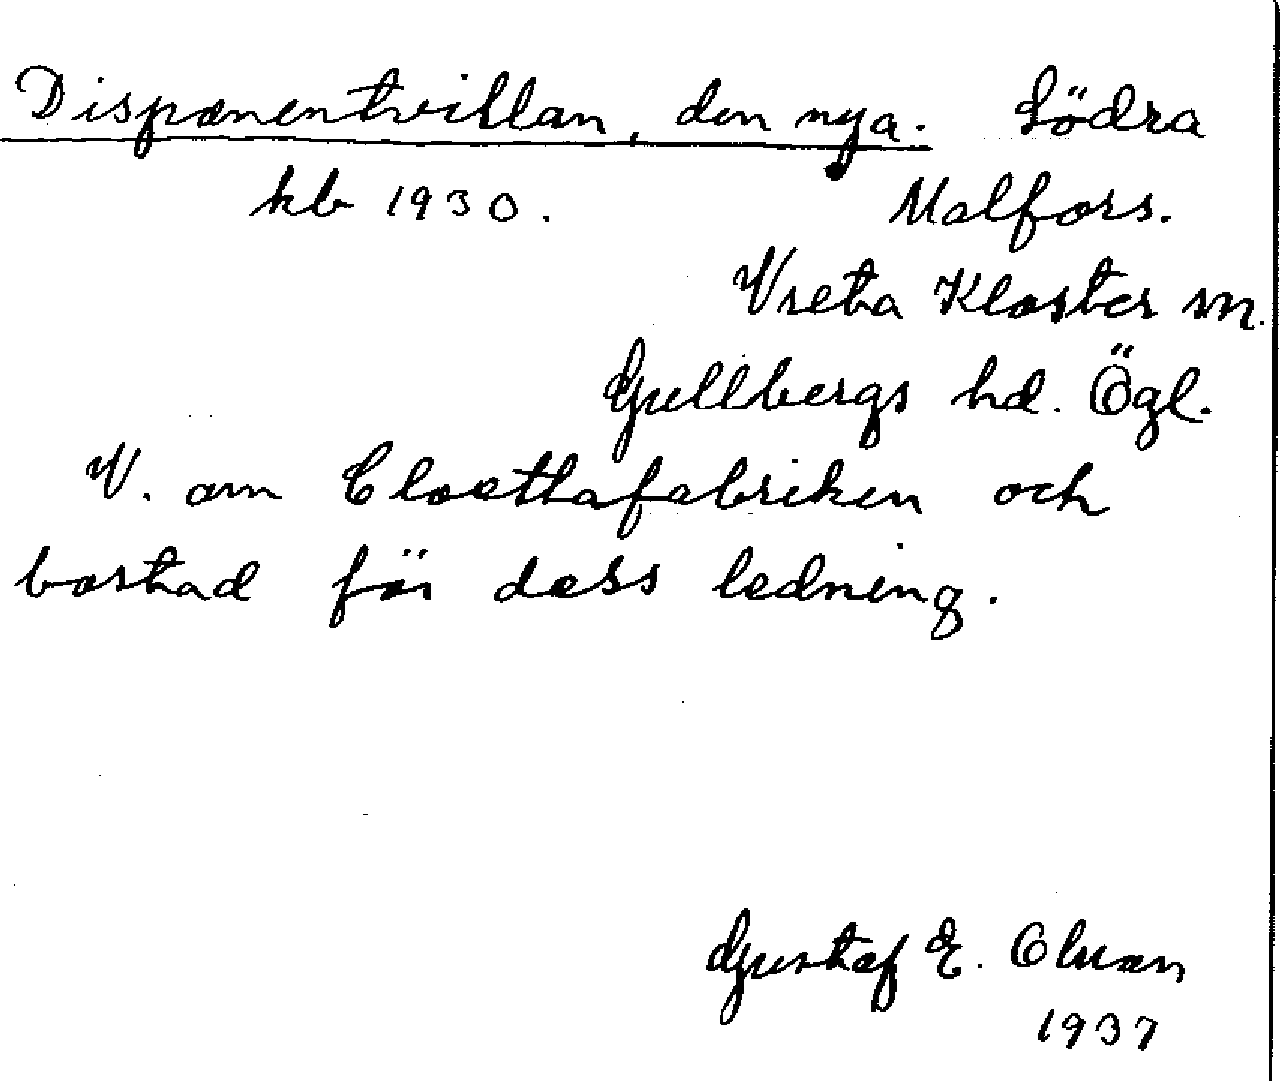 Disponentvillan, den nya. Södra
kb 1930. Malfors.
Vreta Kloster sn.
Gullbergs hd. Ögl.
V. om Cloettafabriken och
bostad för dess ledning.
Gustaf E. Olsson
1937